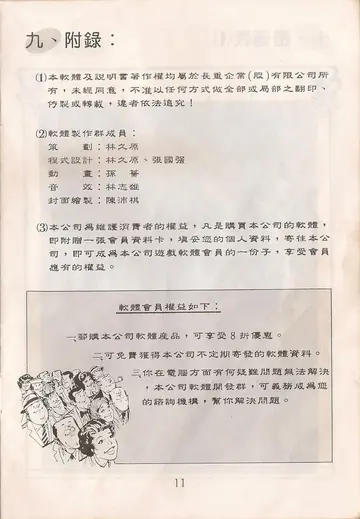 九、附錄：
(1)本軟體及說明書著作權均屬於長重企業(股)有限公司所
有，未經同意，不准以任何方式做全部或局部之翻印、
仿製或轉載，違者依法追究！
(2)軟體製作群成員：
策　　劃：林久原
程式設計：林久原、張國強
動　　畫：孫　蕃
音　　效：林志雄
封面繪製：陳沛棋
(3)本公司為維護消費者的權益，凡是購買本公司的軟體，
即附贈一張會員資料卡，填妥您的個人資料，寄往本公
司，即可成為本公司遊戲軟體會員的一份子，享受會員
應有的權益。
軟體會員權益如下：
一、郵購本公司軟體產品，可享受8折優惠。
二、可免費獲得本公司不定期寄發的軟體資料。
三、你在電腦方面有何疑難問題無法解決
，本公司軟體開發群，可義務成為您
的諮詢機構，幫你解決問題。
11